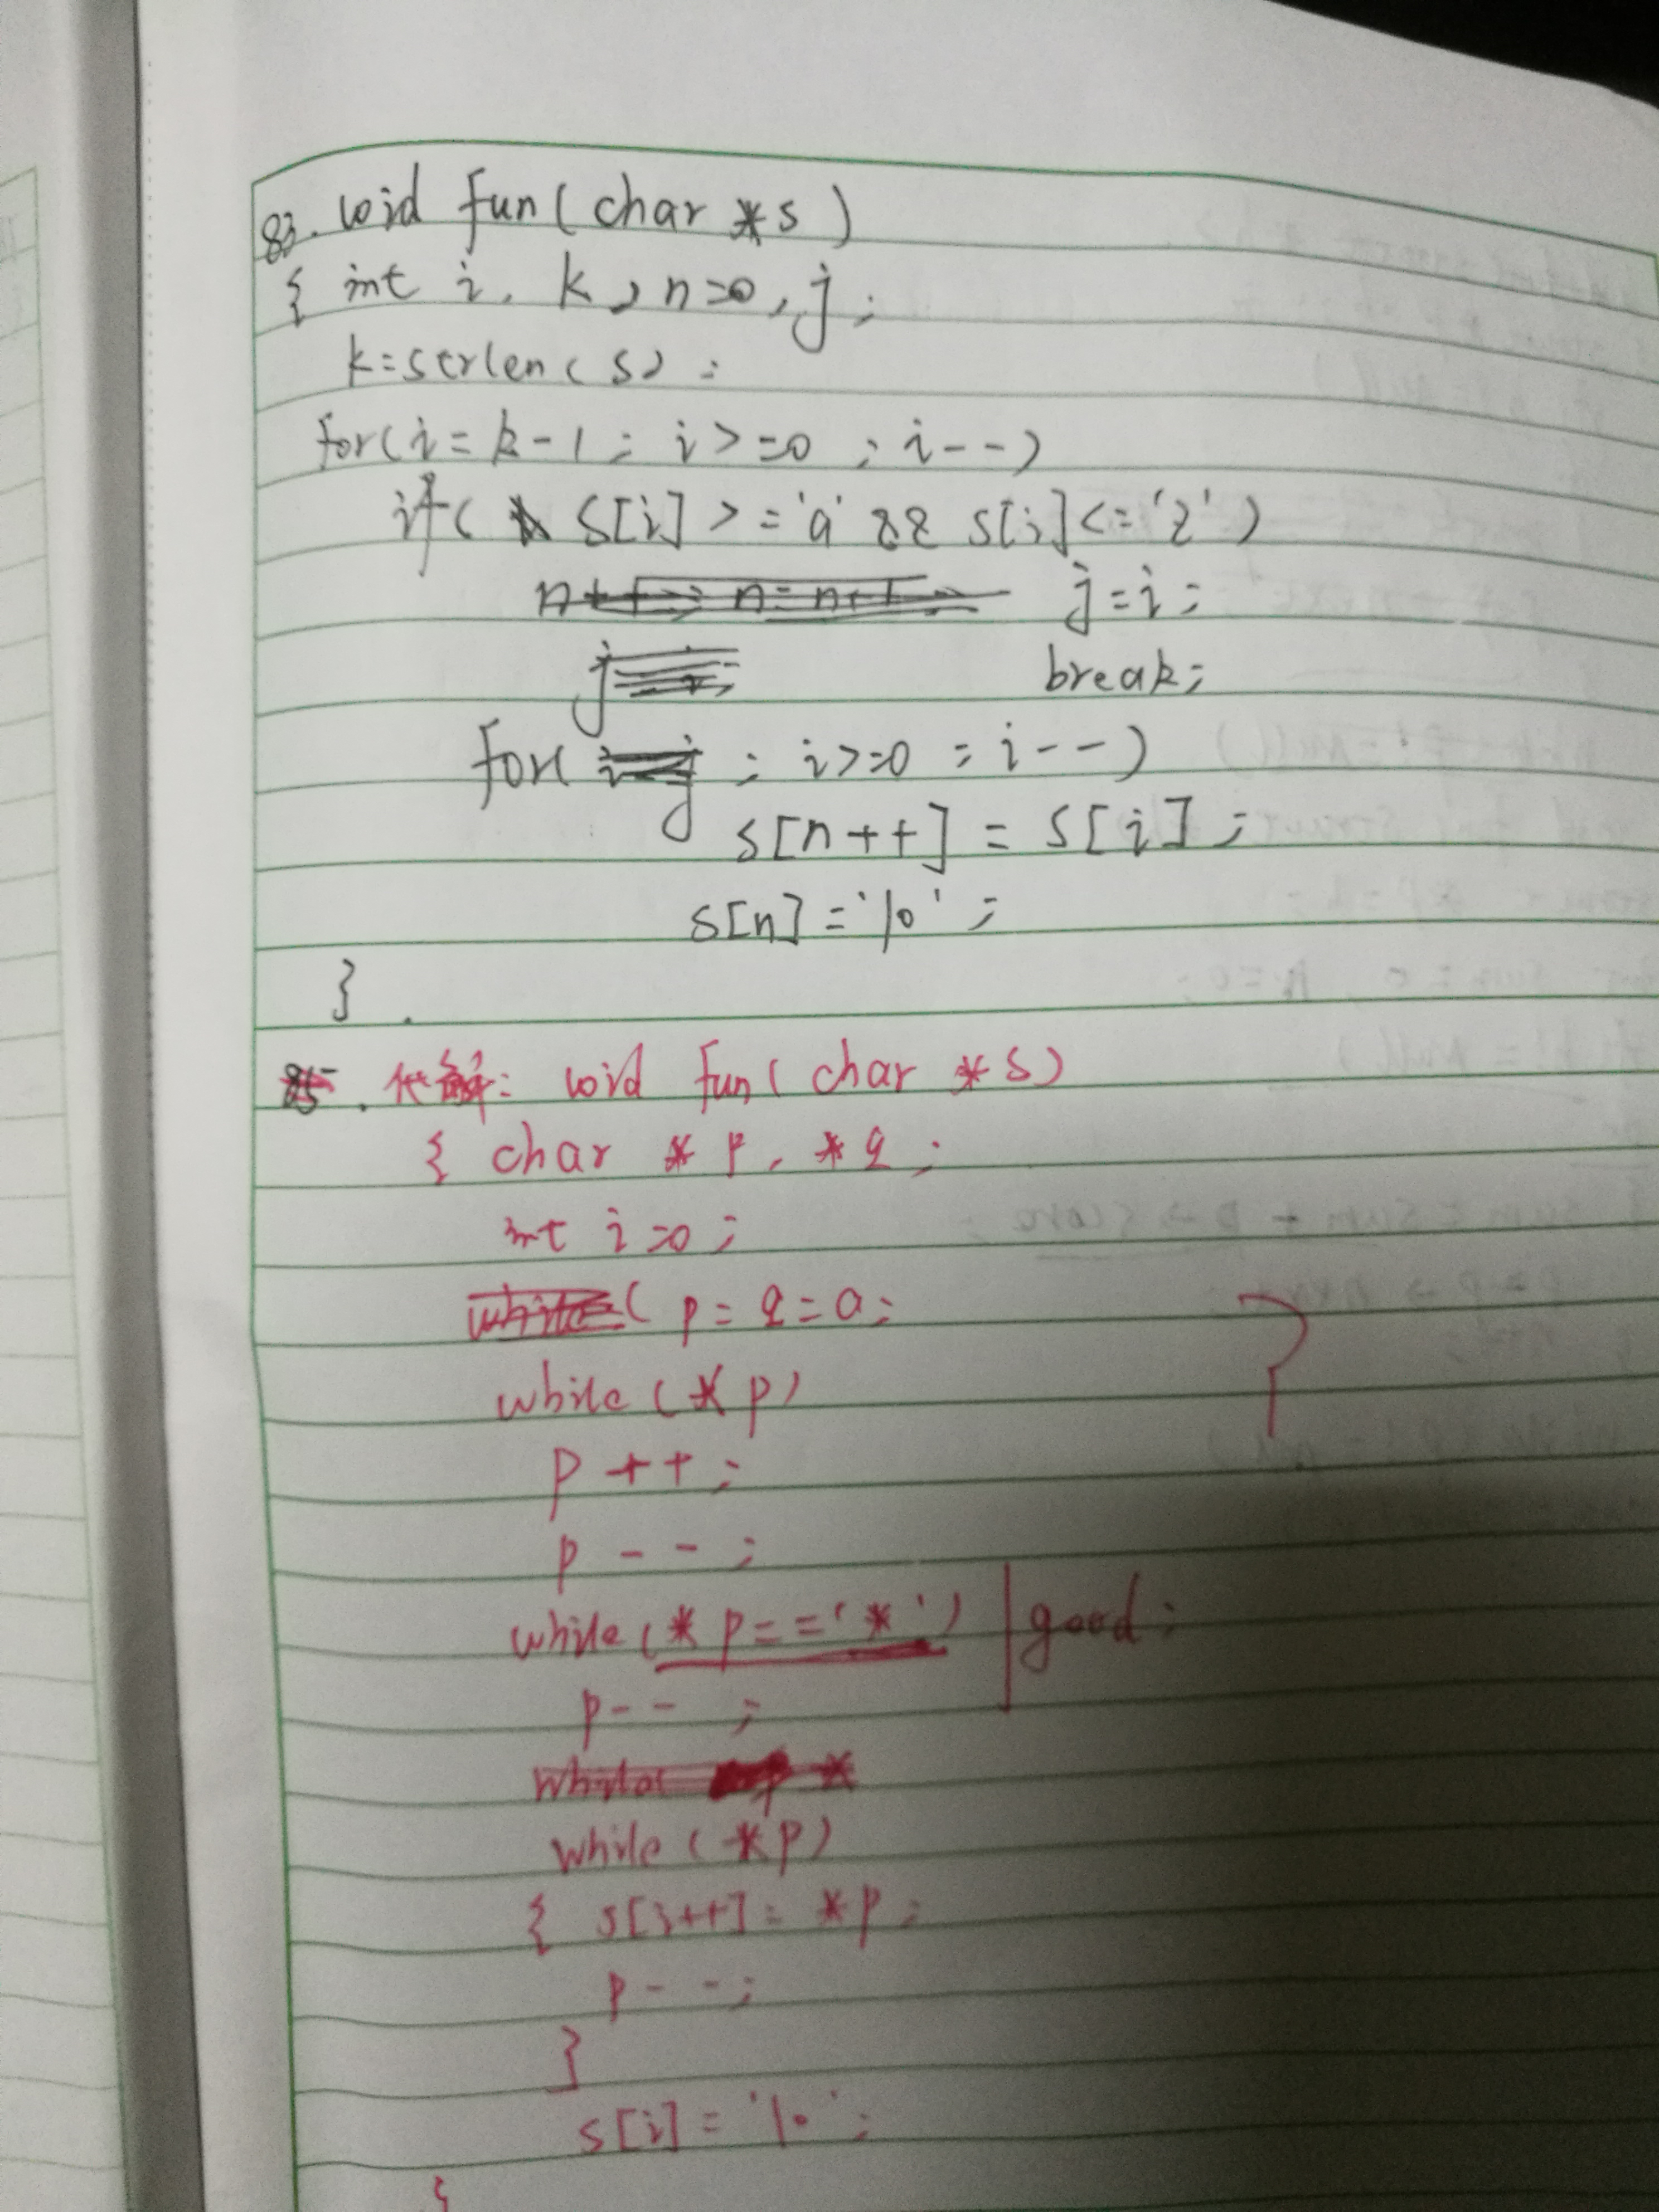 83. void fun(char *s)
{ int i, k, n=0, j;
k=strlen(s);
for(i=k-1; i>=0; i--)
if( s[i]>='a' && s[i]<='z')
j=i;
break;
for( ; i>=0; i--)
s[n++] = s[i];
s[n]='\0';
}.
85. 代解: void fun(char *s)
{ char *p, *q;
int i=0;
p=q=a;
while(*p)
p++;
p--;
while(*p=='*') | good;
p--;
while(*p)
{ s[i++]=*p;
p--;
}
s[i]='\0';
{